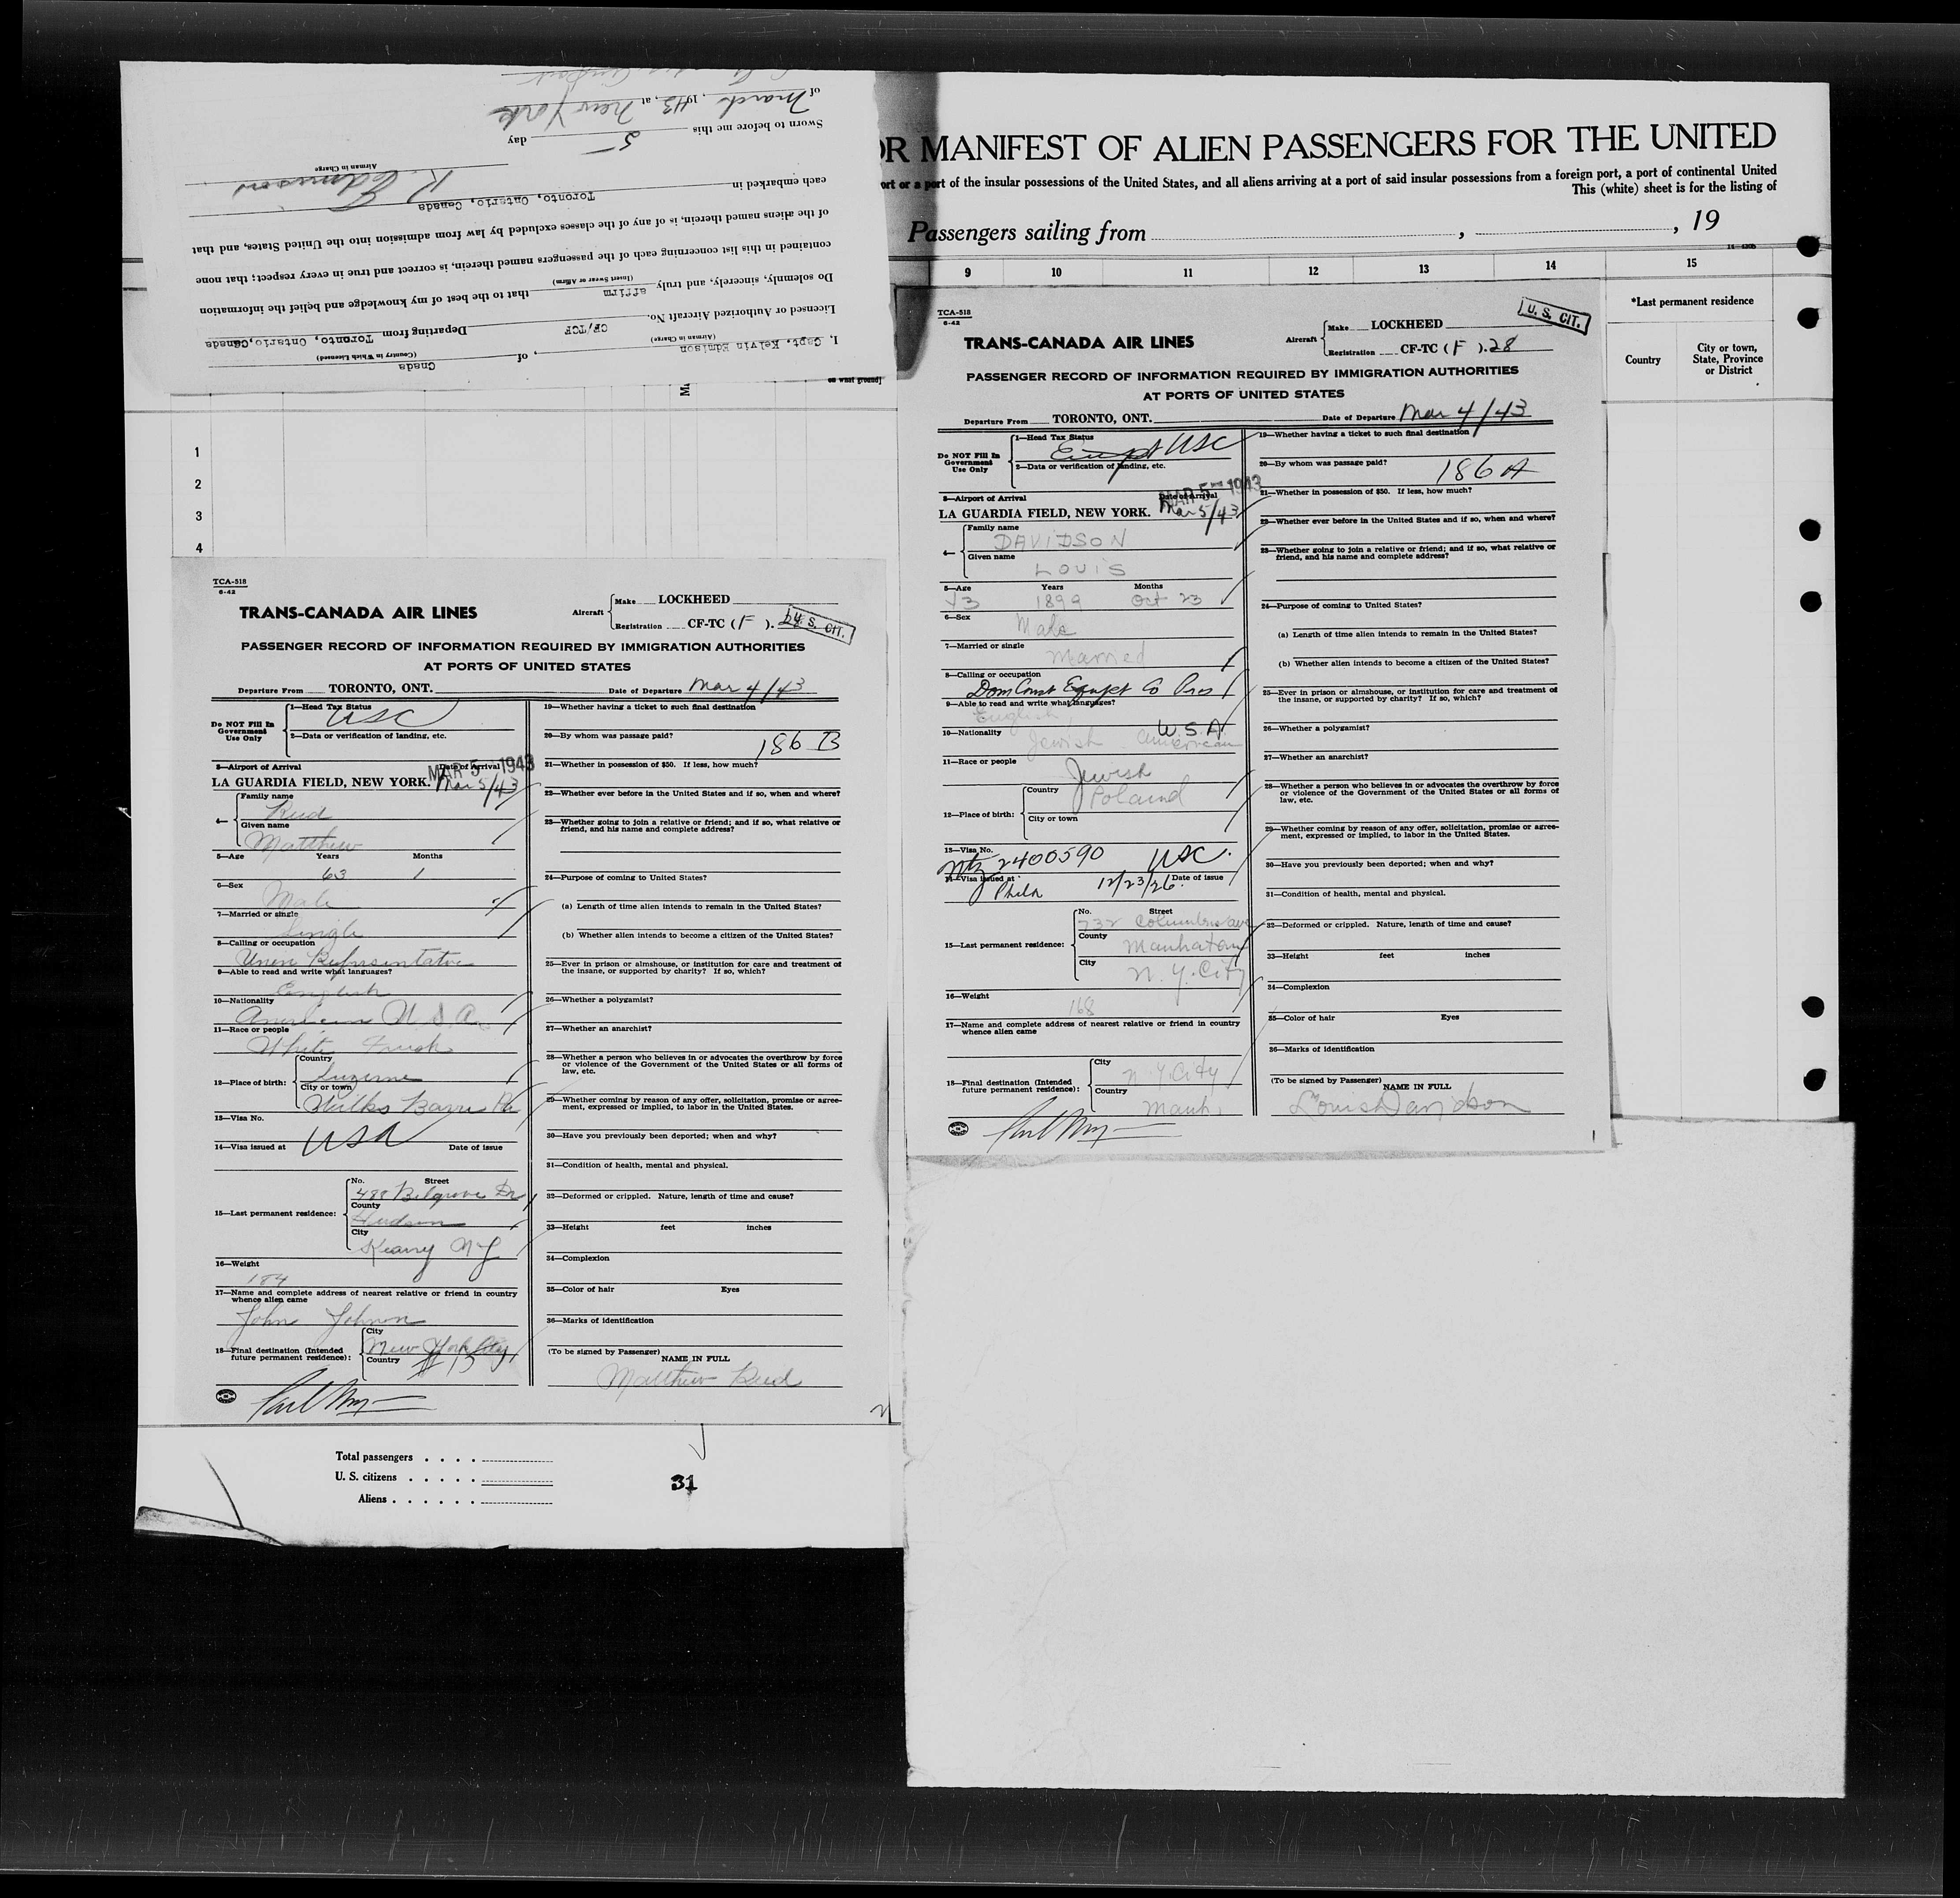 I, Capt. Kelvin Edmison, of Cnada
(Airman in Charge) (Country in Which Licensed)
Licensed or Authorized Aircraft No. CF/TCF Departing from Toronto, Ontario, Canada
Do solemnly, sincerely, and truly affirm that to the best of my knowledge and belief the information
(Insert Swear or Affirm)
contained in this list concerning each of the passengers named therein, is correct and true in every respect; that none
of the aliens named therein, is of any of the classes excluded by law from admission into the United States, and that
each embarked in Toronto, Ontario, Canada
K. Edmison
Airman in Charge
Sworn to before me this 5 day
of March, 1943, at New York
on what ground]
1
2
3
4
TCA-518
6-42
TRANS-CANADA AIR LINES
Aircraft Make LOCKHEED
Registration CF-TC (F).
U. S. CIT.
PASSENGER RECORD OF INFORMATION REQUIRED BY IMMIGRATION AUTHORITIES
AT PORTS OF UNITED STATES
Departure From TORONTO, ONT. Date of Departure Mar 4/43
Do NOT Fill In Government Use Only
1—Head Tax Status USC
2—Data or verification of landing, etc.
3—Airport of Arrival Date of Arrival
MAR 5 - 1943
LA GUARDIA FIELD, NEW YORK. Mar 5/43
4— Family name Reid
Given name Matthew
5—Age Years Months
63 1
6—Sex Male
7—Married or single Single
8—Calling or occupation
Union Representative
9—Able to read and write what languages?
English
10—Nationality
American U.S.A.
11—Race or people
White Irish
12—Place of birth: Country Luzerne
City or town Wilks Barre Pa
13—Visa No.
USA
14—Visa issued at Date of issue
15—Last permanent residence: No. Street
488 Belgrove Dr
County Hudson
City Kearny NJ
16—Weight
184
17—Name and complete address of nearest relative or friend in country
whence alien came
John Johnson
18—Final destination (Intended
future permanent residence): City New York City
Country
19—Whether having a ticket to such final destination
20—By whom was passage paid?
186 B
21—Whether in possession of $50. If less, how much?
22—Whether ever before in the United States and if so, when and where?
23—Whether going to join a relative or friend; and if so, what relative or
friend, and his name and complete address?
24—Purpose of coming to United States?
(a) Length of time alien intends to remain in the United States?
(b) Whether alien intends to become a citizen of the United States?
25—Ever in prison or almshouse, or institution for care and treatment of
the insane, or supported by charity? If so, which?
26—Whether a polygamist?
27—Whether an anarchist?
28—Whether a person who believes in or advocates the overthrow by force
or violence of the Government of the United States or all forms of
law, etc.
29—Whether coming by reason of any offer, solicitation, promise or agree-
ment, expressed or implied, to labor in the United States.
30—Have you previously been deported; when and why?
31—Condition of health, mental and physical.
32—Deformed or crippled. Nature, length of time and cause?
33—Height feet inches
34—Complexion
35—Color of hair Eyes
36—Marks of identification
(To be signed by Passenger)
NAME IN FULL
Matthew Reid
Total passengers . . . .
U. S. citizens . . . . .
Aliens . . . . . .
31
OR MANIFEST OF ALIEN PASSENGERS FOR THE UNITED
ort or a port of the insular possessions of the United States, and all aliens arriving at a port of said insular possessions from a foreign port, a port of continental United
This (white) sheet is for the listing of
Passengers sailing from , , 19
9 10 11 12 13 14 15
*Last permanent residence
Country
City or town, State, Province or District
TCA-518
6-42
TRANS-CANADA AIR LINES
Aircraft Make LOCKHEED
Registration CF-TC (F).28
U. S. CIT.
PASSENGER RECORD OF INFORMATION REQUIRED BY IMMIGRATION AUTHORITIES
AT PORTS OF UNITED STATES
Departure From TORONTO, ONT. Date of Departure Mar 4/43
Do NOT Fill In Government Use Only
1—Head Tax Status
Exempt USC
2—Data or verification of landing, etc.
3—Airport of Arrival Date of Arrival
MAR 5 - 1943
LA GUARDIA FIELD, NEW YORK. Mar 5/43
4— Family name DAVIDSON
Given name LOUIS
5—Age Years Months
43 1899 Oct 23
6—Sex Male
7—Married or single Married
8—Calling or occupation
Dom Const Equipt Co Pres
9—Able to read and write what languages?
English
10—Nationality U.S.A.
Jewish American
11—Race or people
Jewish
12—Place of birth: Country Poland
City or town
13—Visa No.
Ntz 2400590 USC.
14—Visa issued at Date of issue
Phila 12/23/26
15—Last permanent residence: No. Street
732 Columbus ave
County Manhatan
City N.Y. City
16—Weight
168
17—Name and complete address of nearest relative or friend in country
whence alien came
18—Final destination (Intended
future permanent residence): City N.Y. City
Country Manh.
19—Whether having a ticket to such final destination
20—By whom was passage paid?
186 A
21—Whether in possession of $50. If less, how much?
22—Whether ever before in the United States and if so, when and where?
23—Whether going to join a relative or friend; and if so, what relative or
friend, and his name and complete address?
24—Purpose of coming to United States?
(a) Length of time alien intends to remain in the United States?
(b) Whether alien intends to become a citizen of the United States?
25—Ever in prison or almshouse, or institution for care and treatment of
the insane, or supported by charity? If so, which?
26—Whether a polygamist?
27—Whether an anarchist?
28—Whether a person who believes in or advocates the overthrow by force
or violence of the Government of the United States or all forms of
law, etc.
29—Whether coming by reason of any offer, solicitation, promise or agree-
ment, expressed or implied, to labor in the United States.
30—Have you previously been deported; when and why?
31—Condition of health, mental and physical.
32—Deformed or crippled. Nature, length of time and cause?
33—Height feet inches
34—Complexion
35—Color of hair Eyes
36—Marks of identification
(To be signed by Passenger)
NAME IN FULL
Louis Davidson